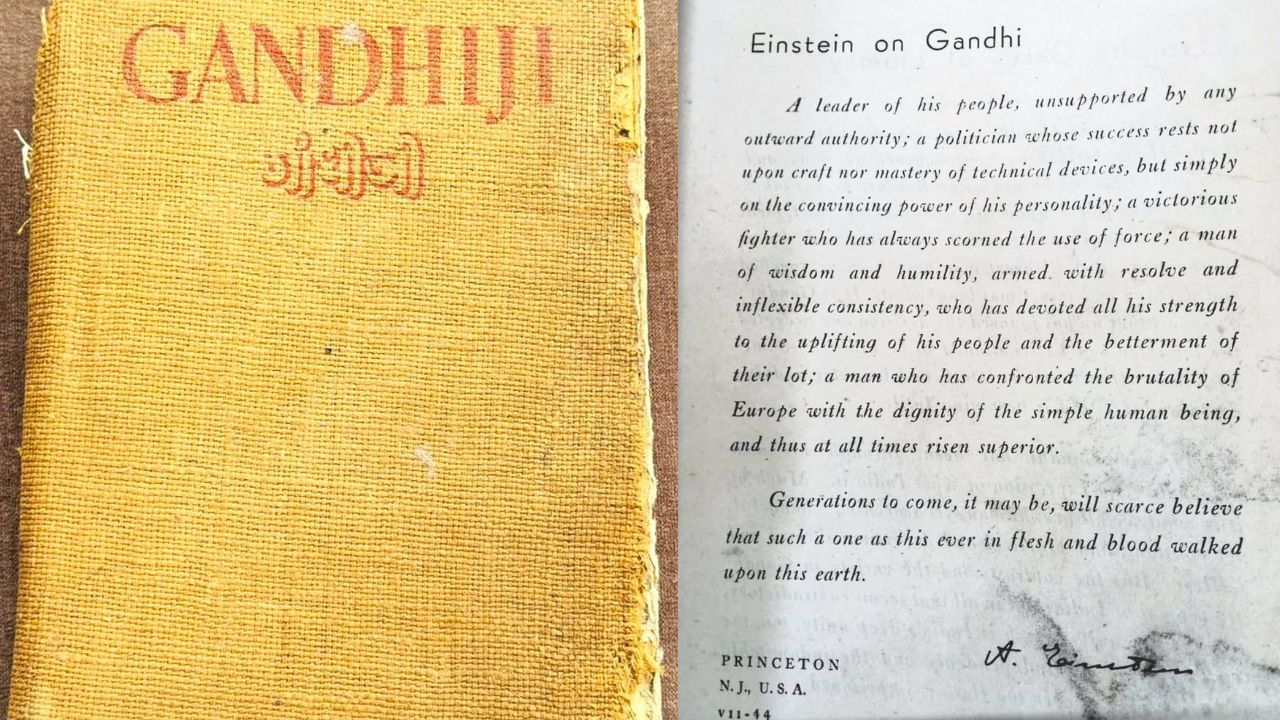 GANDHIJI
गांधीजी
Einstein on Gandhi
A leader of his people, unsupported by any
outward authority; a politician whose success rests not
upon craft nor mastery of technical devices, but simply
on the convincing power of his personality; a victorious
fighter who has always scorned the use of force; a man
of wisdom and humility, armed with resolve and
inflexible consistency, who has devoted all his strength
to the uplifting of his people and the betterment of
their lot; a man who has confronted the brutality of
Europe with the dignity of the simple human being,
and thus at all times risen superior.
Generations to come, it may be, will scarce believe
that such a one as this ever in flesh and blood walked
upon this earth.
A. Einstein
PRINCETON
N. J., U. S. A.
VII-44